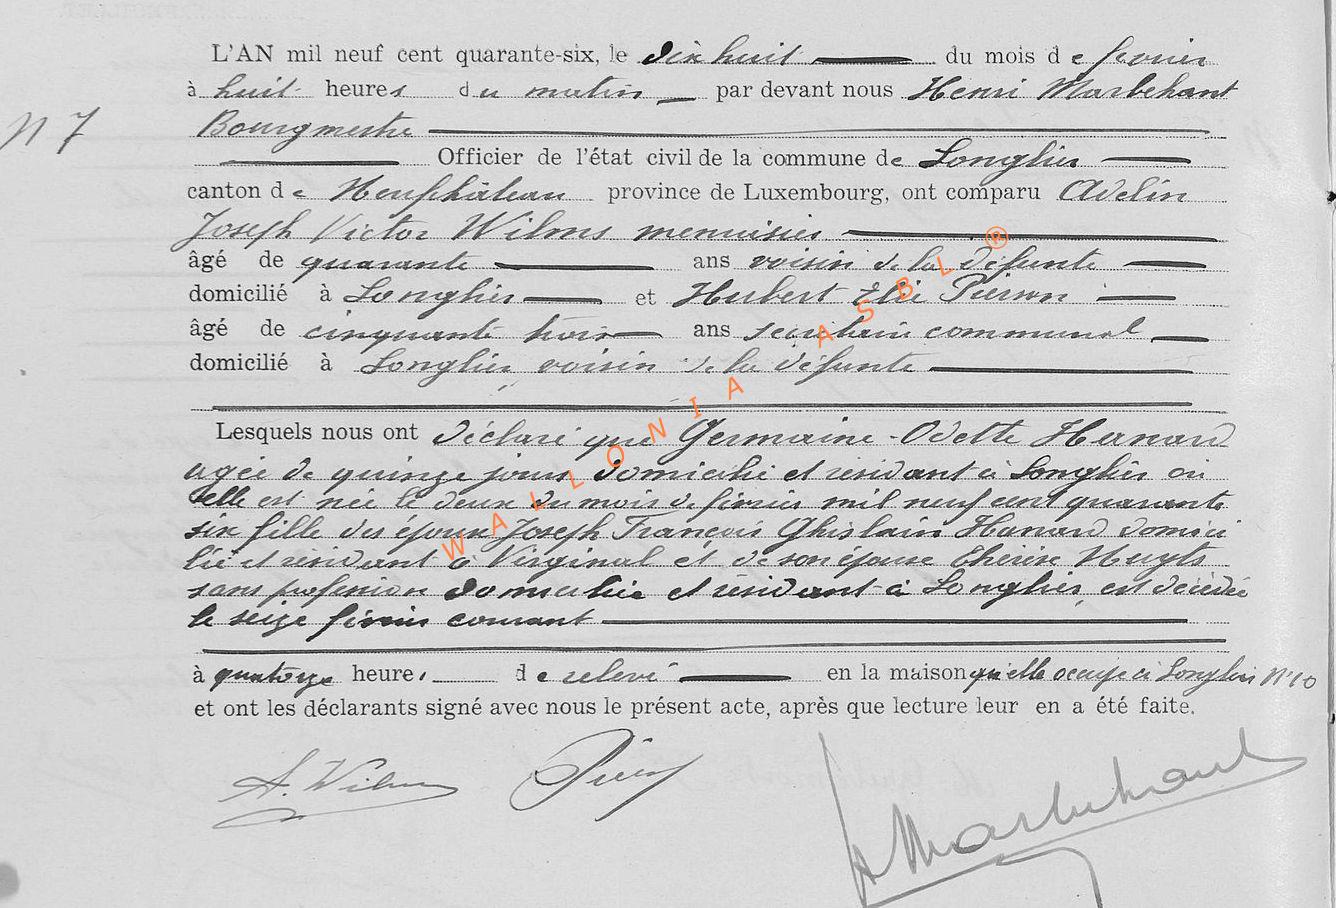 L'AN mil neuf cent quarante-six, le dix huit du mois de février
à huit heures du matin par devant nous Henri Marbehant
N 7
Bourgmestre
Officier de l'état civil de la commune de Longlier
canton de Neufchâteau province de Luxembourg, ont comparu Adelin
Joseph Victor Wilms menuisier
âgé de quarante ans voisin de la défunte
domicilié à Longlier et Hubert Elie Pierson
âgé de cinquante trois ans secrétaire communal
domicilié à Longlier voisin de la défunte
Lesquels nous ont déclaré que Germaine-Odette Hanard
agée de quinze jours domiciliée et résidant à Longlier où
elle est née le deux du mois de février mil neuf cent quarante
six fille des époux Joseph François Ghislain Hanard domici
lié et résidant à Virginal et de son épouse Thérèse Huyts
sans profession domiciliée et résidant à Longlier, est décédée
le seize février courant
à quatorze heures de relevé en la maison qu'elle occupe à Longlier N° 10
et ont les déclarants signé avec nous le présent acte, après que lecture leur en a été faite.
A. Wilms Pierson
H Marbehant
WALLONIA ASBL ®